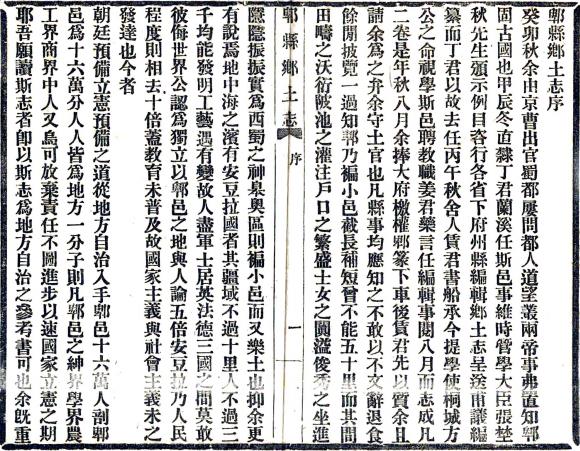 郫縣鄉土志序
癸卯秋余由京曹出官蜀都屢問都人道望叢兩帝事弗置知郫
固古國也甲辰冬直隸丁君蘭溪任斯邑事維時管學大臣張埜
秋先生頒示例目咨行各省下府州縣編輯鄉土志呈送甫議編
纂而丁君以故去任丙午秋舍人賃君書船承今提學使桐城方
公之命視學斯邑聘教職姜君藥言任編輯事閱八月而志成凡
二卷是年秋八月余捧大府檄權郫篆下車後賃君先以質余且
請余爲之弁余守土官也凡縣事均應知之不敢以不文辭退食
餘閒披覽一過知郫乃褊小邑截長補短曾不能五十里而其間
田疇之沃衍陂池之灌注戶口之繁盛士女之闐溢俊秀之坐進
郫縣鄉土志 序 一
隱隱振振實爲西蜀之神臯奧區則褊小邑而又樂土也抑余更
有說焉地中海之濱有安豆拉國者其疆域不過十里人不過三
千均能發明工藝遇有變故人盡軍士居英法德三國之間莫敢
彼侮世界公認爲獨立以郫邑之地與人論五倍安豆拉乃人民
程度則相去十倍蓋教育未普及故國家主義與社會主義未之
發達也今者
朝廷預備立憲預備之道從地方自治入手郫邑十六萬人剖郫
邑爲十六萬分人人皆爲地方一分子則凡郫邑之紳界學界農
工界商界中人又烏可放棄責任不圖進步以速國家立憲之期
耶吾願讀斯志者卽以斯志爲地方自治之參考書可也余旣重